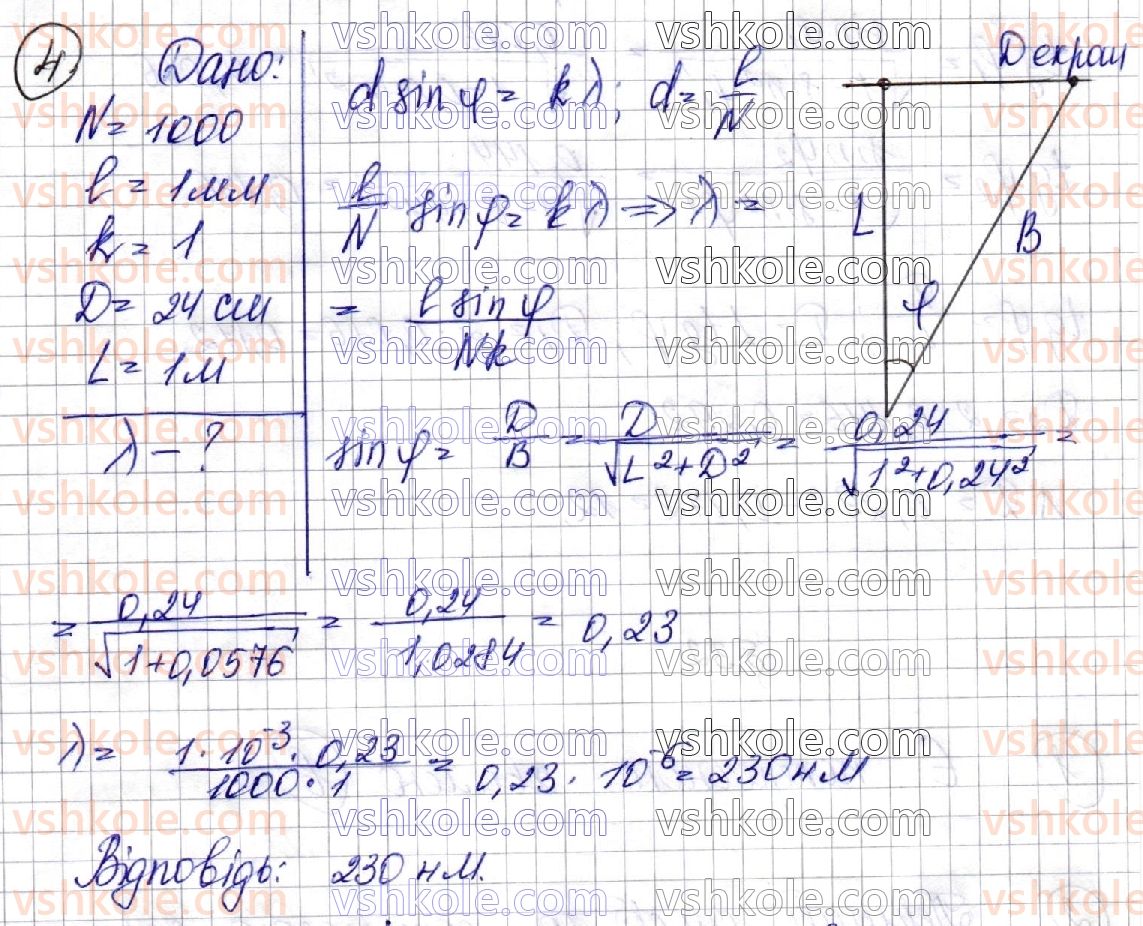 4 Дано:
N = 1000
l = 1 мм
k = 1
D = 24 см
L = 1 м
λ - ?
d sin φ = kλ; d = l/N
l/N sin φ = kλ => λ =
= l sin φ / Nk
D екран
L
B
φ
sin φ = D/B = D/√(L²+D²) = 0,24/√(1²+0,24²) =
= 0,24/√(1+0,0576) = 0,24/1,0284 = 0,23
λ = 1·10⁻³·0,23 / 1000·1 = 0,23·10⁻⁶ = 230 нм
Відповідь: 230 нм.
vshkole.com